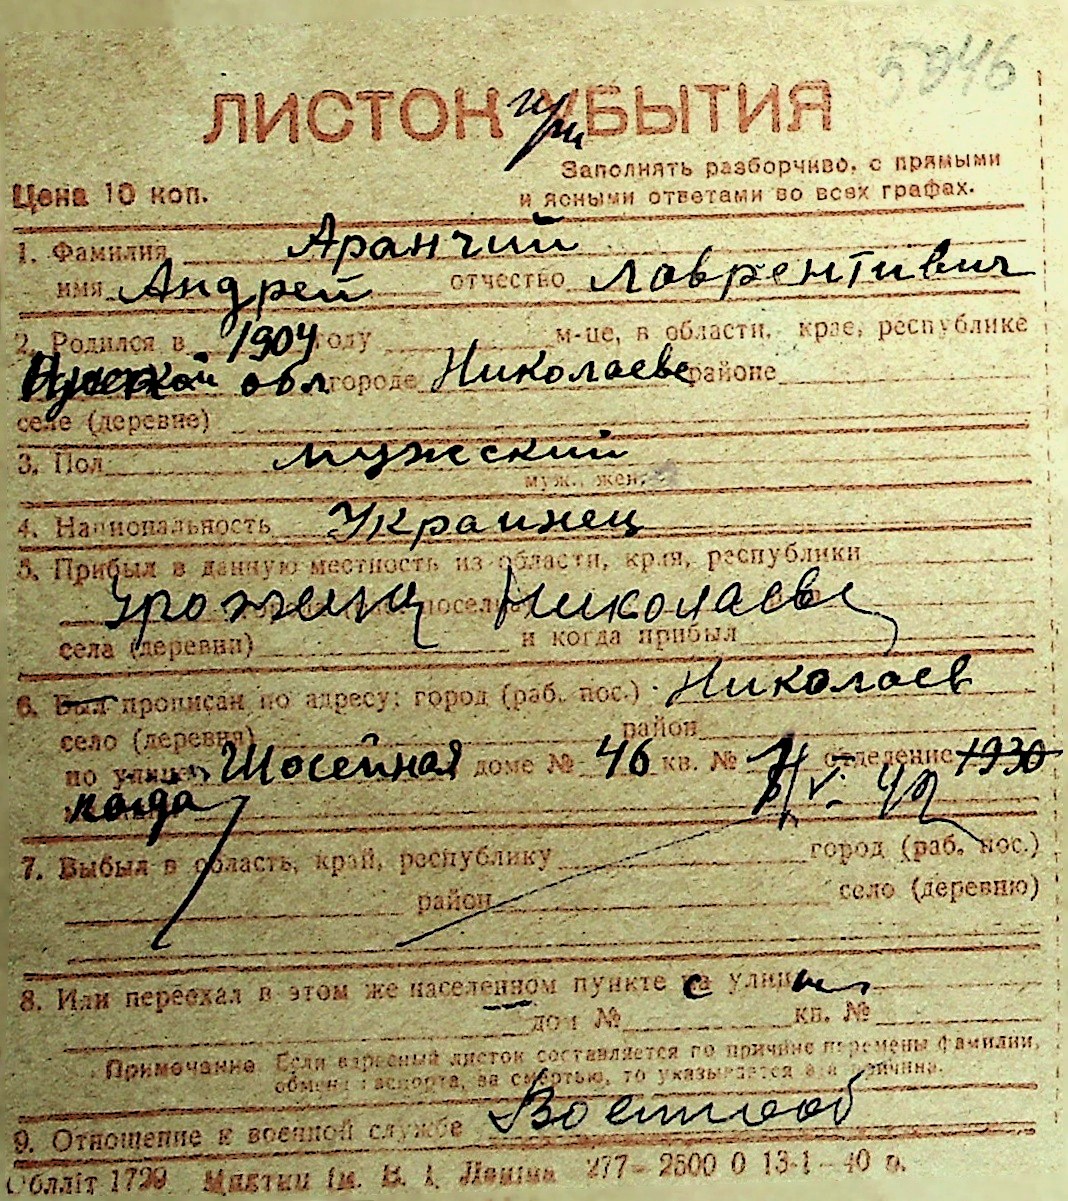 5946
ЛИСТОК при УБЫТИЯ
Заполнять разборчиво, с прямыми
Цена 10 коп. и ясными ответами во всех графах.
1. Фамилия Аранчий
имя Андрей отчество Лаврентивич
2. Родился в 1904 году м-це, в области, крае, республике
обл городе Николаеве районе
селе (деревне)
3. Пол мужский
муж., жен.
4. Национальность Украинец
5. Прибыл в данную местность из области, края, республики
Урожениц Николаева
села (деревни) и когда прибыл
6. Был прописан по адресу: город (раб. пос.) Николаев
село (деревня) район
по улице Шосейная доме № 46 кв. № отделение 1930
когда
7. Выбыл в область, край, республику город (раб. пос.)
район село (деревню)
8. Или переехал в этом же населенном пункте с улицы
дом № кв. №
Примечание Если адресный листок составляется по причине перемены фамилии,
обмена паспорта, за смертью, то указывается эта причина.
9. Отношение к военной службе Военнооб
Облліт 1729 ім. В. І. Леніна 277—2500 0 13-1—40 р.